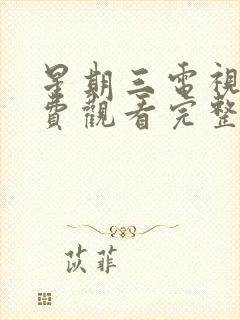 星期三電視
費觀看完整
苡菲